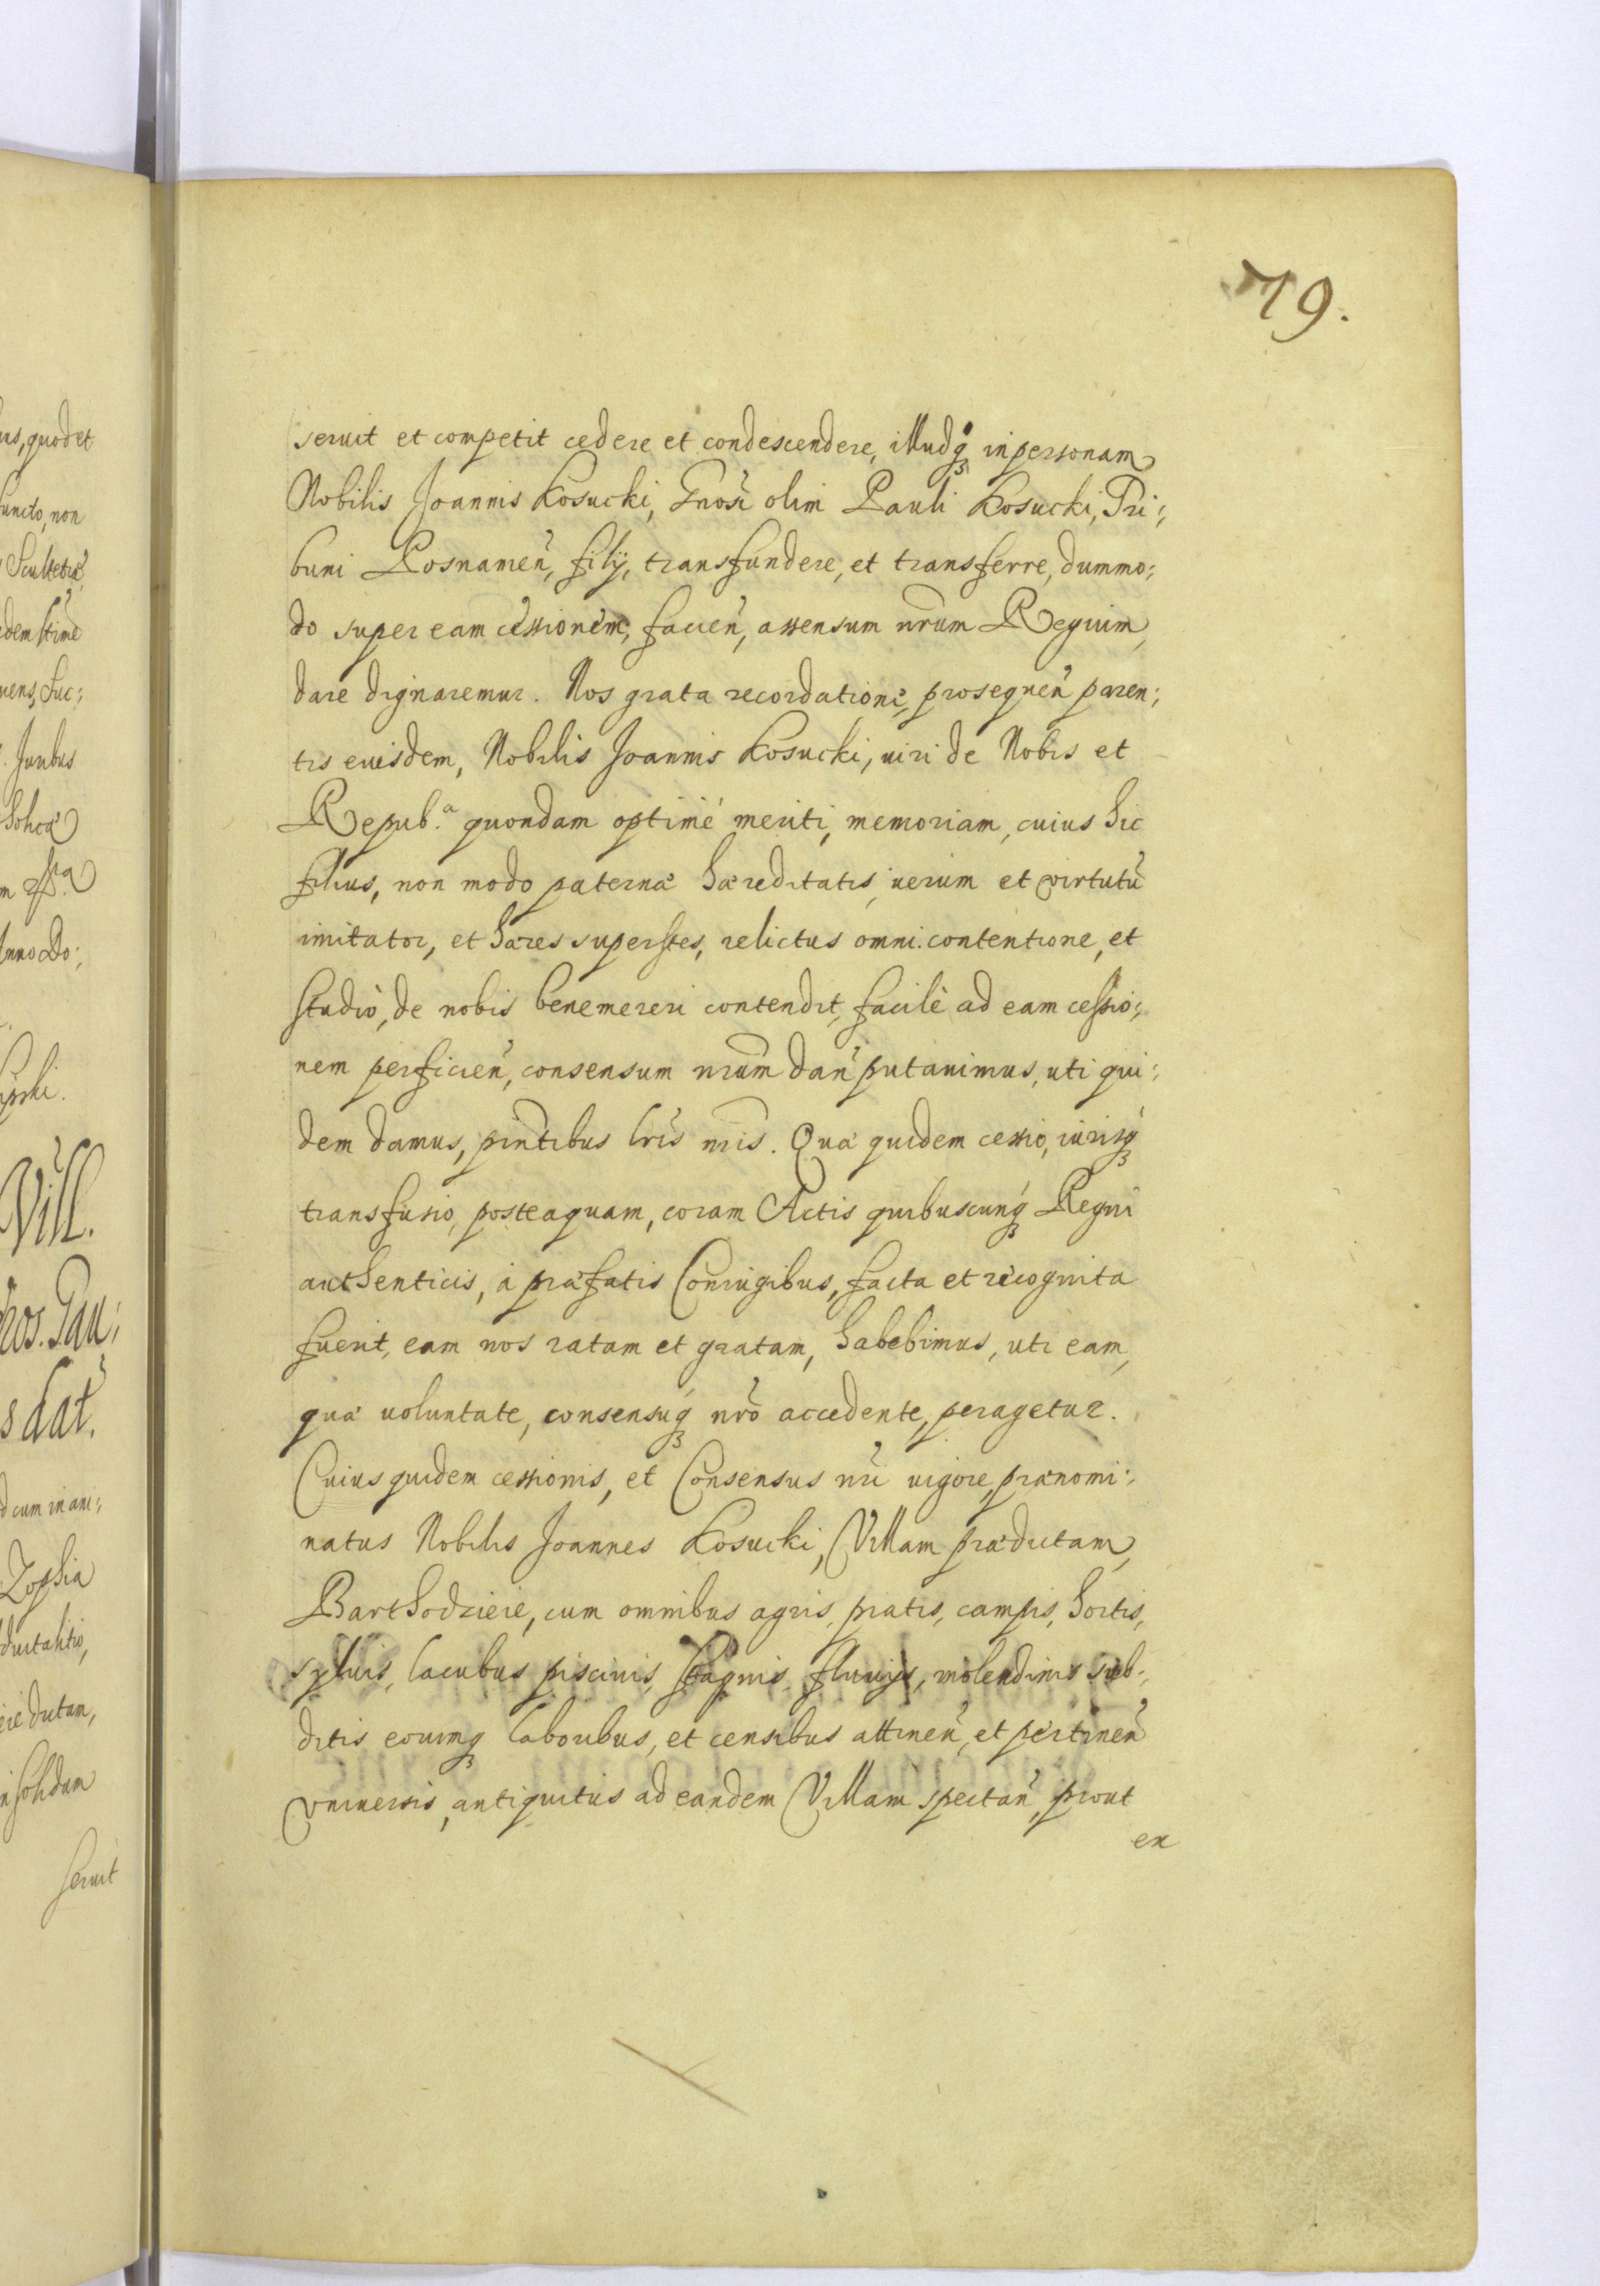 79.
seruit et competit cedere et condescendere, illudq́ in personam
Nobilis Joannis Kosucki, Gnosi olim Pauli Kosucki, Tri:
buni Posnanien̄, filij, transfundere, et transferre, dummo:
do super eam cessionem, facien̄, assensum nrum Regium
dare dignaremur. Nos grata recordatione, prosequen̄ paren:
tis euisdem, Nobilis Joannis Kosucki, uiri de Nobis et
Repub.ᵃ quondam optimé meriti, memoriam, cuius hic
filius, non modo paternæ hæreditatis, uerum et virtutū
imitator, et hæres superstes, relictus omni contentione, et
studió, de nobis benemereri contendit, facilè ad eam cessio:
nem perficien̄, consensum nrum dan̄ putauimus, uti qui:
dem damus, pn̄tibus lrīs nris. Quæ quidem cessio, iurisq́
transfusio, posteaquam, coram Actis quibuscunq́ Regni
authenticis, á præfatis Coniugibus, facta et recognita
fuerit, eam nos ratam et gratam, habebimus, uti eam,
quæ uoluntate, consensuq́ nrō accedente, peragetur.
Cuius quidem cessionis, et Consensus nri uigore, prænomi:
natus Nobilis Joannes Kosucki, Villam prædictam,
Barthodzieie, cum omnibus agris, pratis, campis, hortis,
syluis, lacubus piscinis, stagnis, fluuijs, molendinis sub:
ditis eorumq́ laboribus, et censibus attinen̄, et pertinen̄
vniuersis, antiquitus ad eandem Villam spectan̄, prout
ex
us, quod et
functo, non
Scultetiæ,
Juribus
Anno Do:
Vill.
s dat.
d cum in ani:
Zophia
eie dictam,
in solidum
seruit